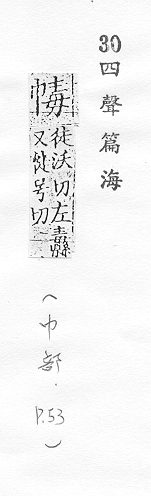 30四聲篇海
徒沃切左纛
又徒号切
(巾部.P.53)